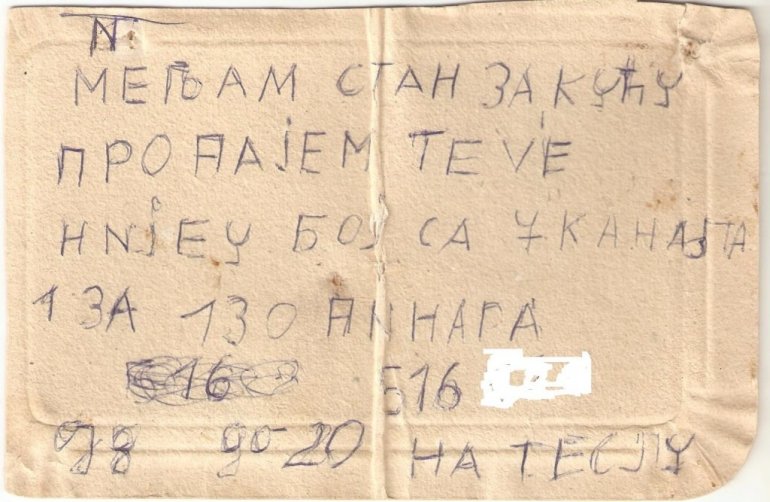 N
МЕЊАМ СТАН ЗА КУЋУ
ПРОДАЈЕМ ТЕVЕ
НNЈЕУ БОЈ СА 7 КАНА
1 ЗА 130 ДNНАРА
516
од 8 до 20 НА ТЕСЛУ